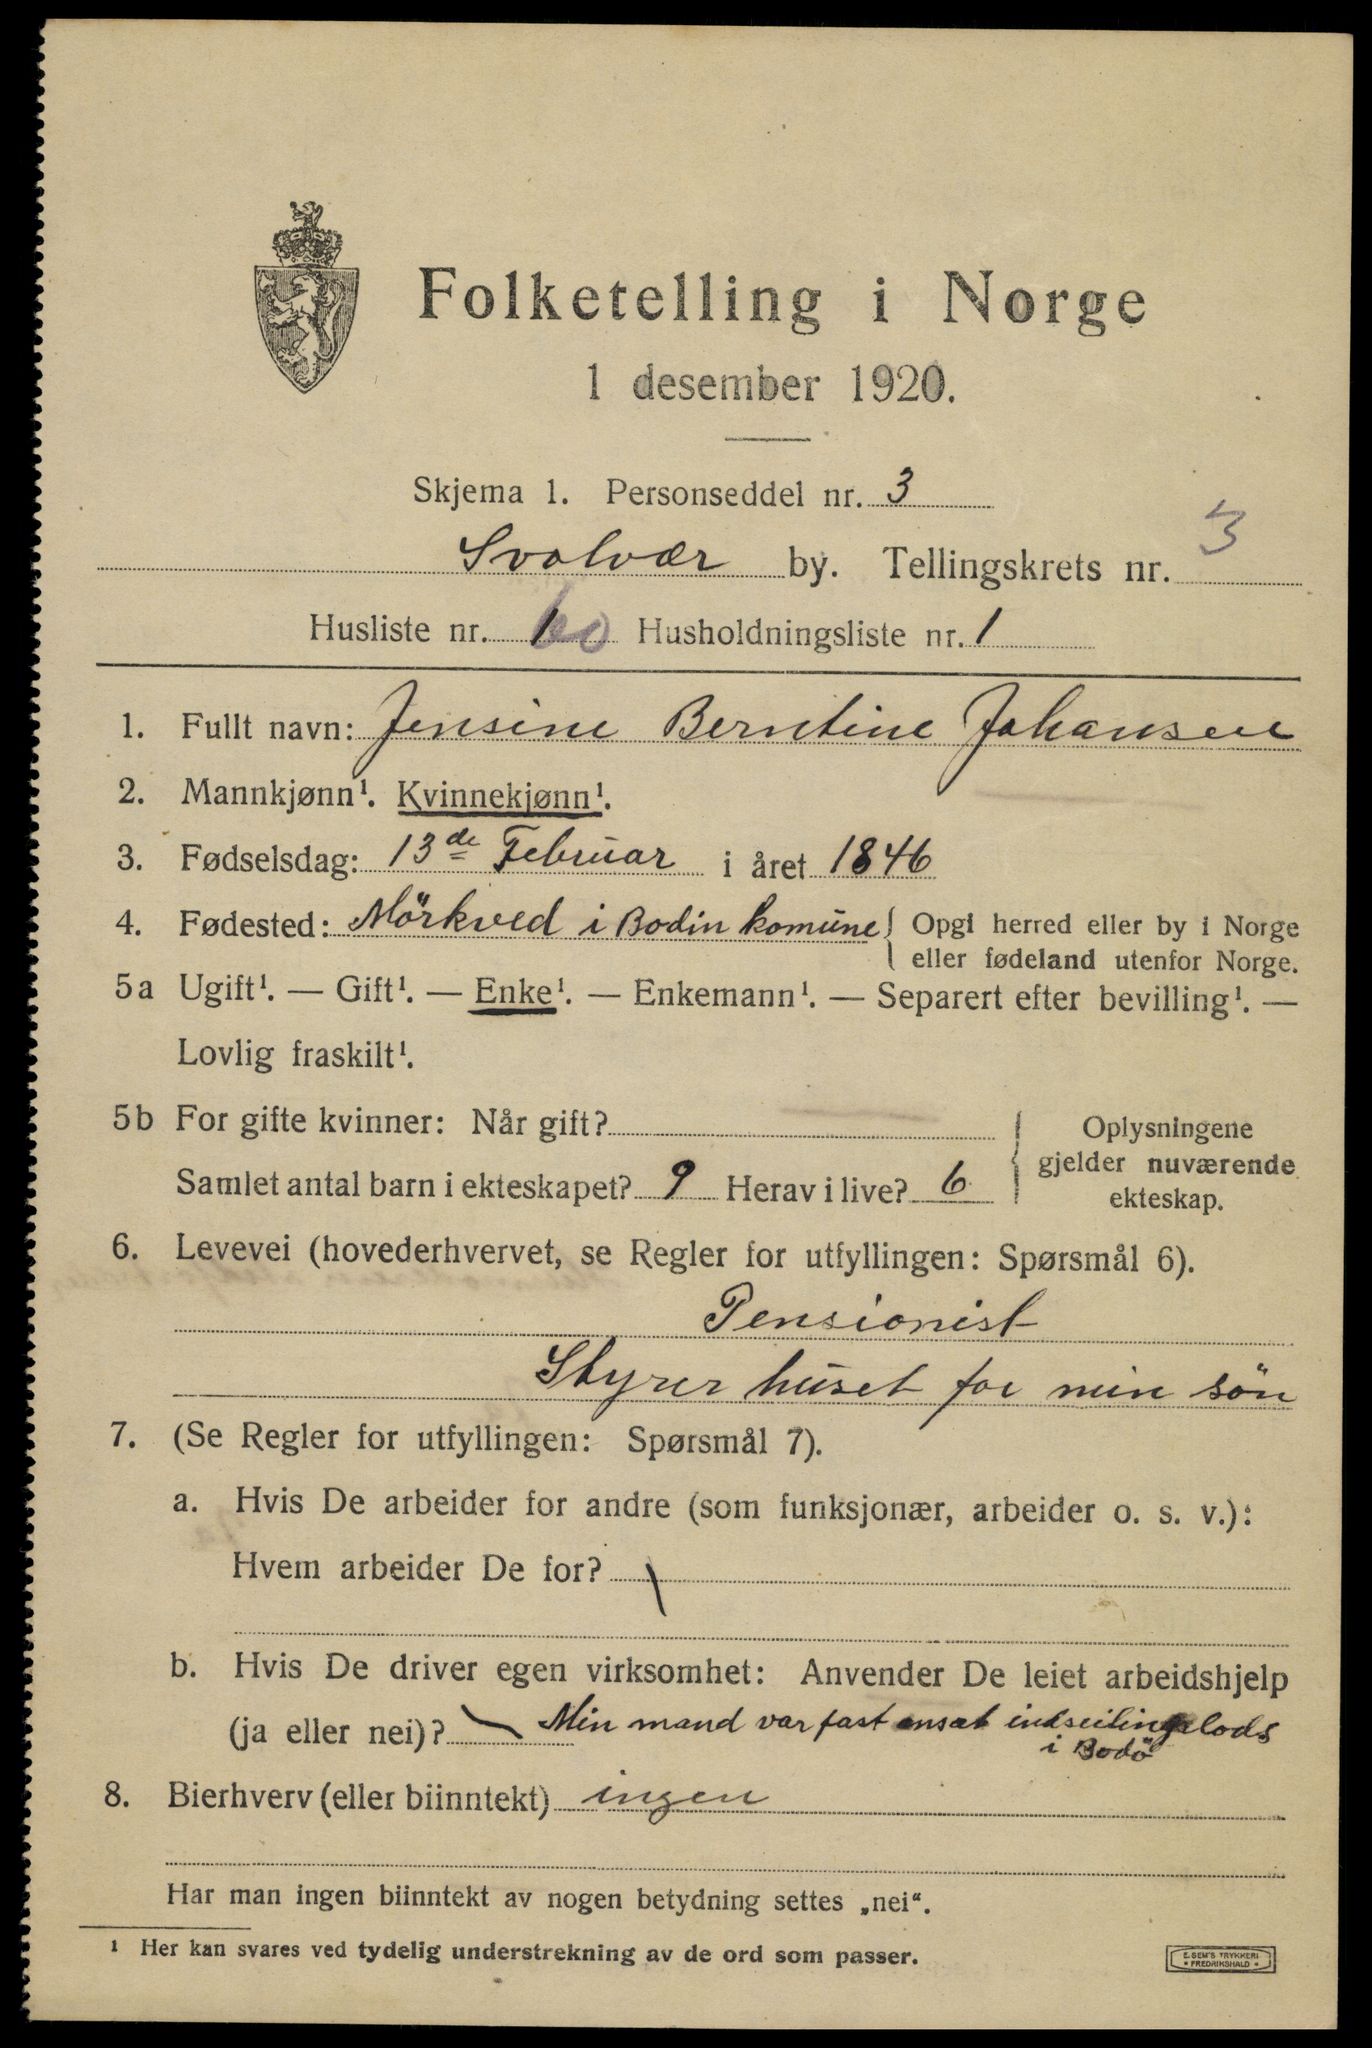 Folketelling i Norge
1 desember 1920.
Skjema 1. Personseddel nr. 3
Svolvær by. Tellingskrets nr. 3
Husliste nr. 60 Husholdningsliste nr. 1
1. Fullt navn: Jensine Berntine Johansen
2. Mannkjønn¹. Kvinnekjønn¹.
3. Fødselsdag: 13de Februar i året 1846
4. Fødested: Mörkved i Bodin komune { Opgi herred eller by i Norge
eller fødeland utenfor Norge.
5a Ugift¹. — Gift¹. — Enke¹. — Enkemann¹. — Separert efter bevilling¹. —
Lovlig fraskilt¹.
5b For gifte kvinner: Når gift?
Samlet antal barn i ekteskapet? 9 Herav i live? 6
Oplysningene
gjelder nuværende
ekteskap.
6. Levevei (hovederhvervet, se Regler for utfyllingen: Spørsmål 6).
Pensionist
Styrer huset for min sön
7. (Se Regler for utfyllingen: Spørsmål 7).
a. Hvis De arbeider for andre (som funksjonær, arbeider o. s. v.):
Hvem arbeider De for? \
b. Hvis De driver egen virksomhet: Anvender De leiet arbeidshjelp
(ja eller nei)? \ Min mand var fast ansat indseilingslods
i Bodö
8. Bierhverv (eller biinntekt) ingen
Har man ingen biinntekt av nogen betydning settes „nei“.
¹ Her kan svares ved tydelig understrekning av de ord som passer.
E. SEM'S TRYKKERI
* FREDRIKSHALD *